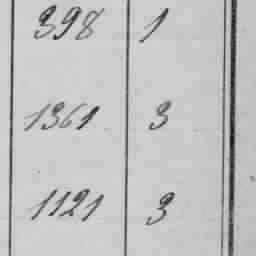 398 1
1361 3
1121 3